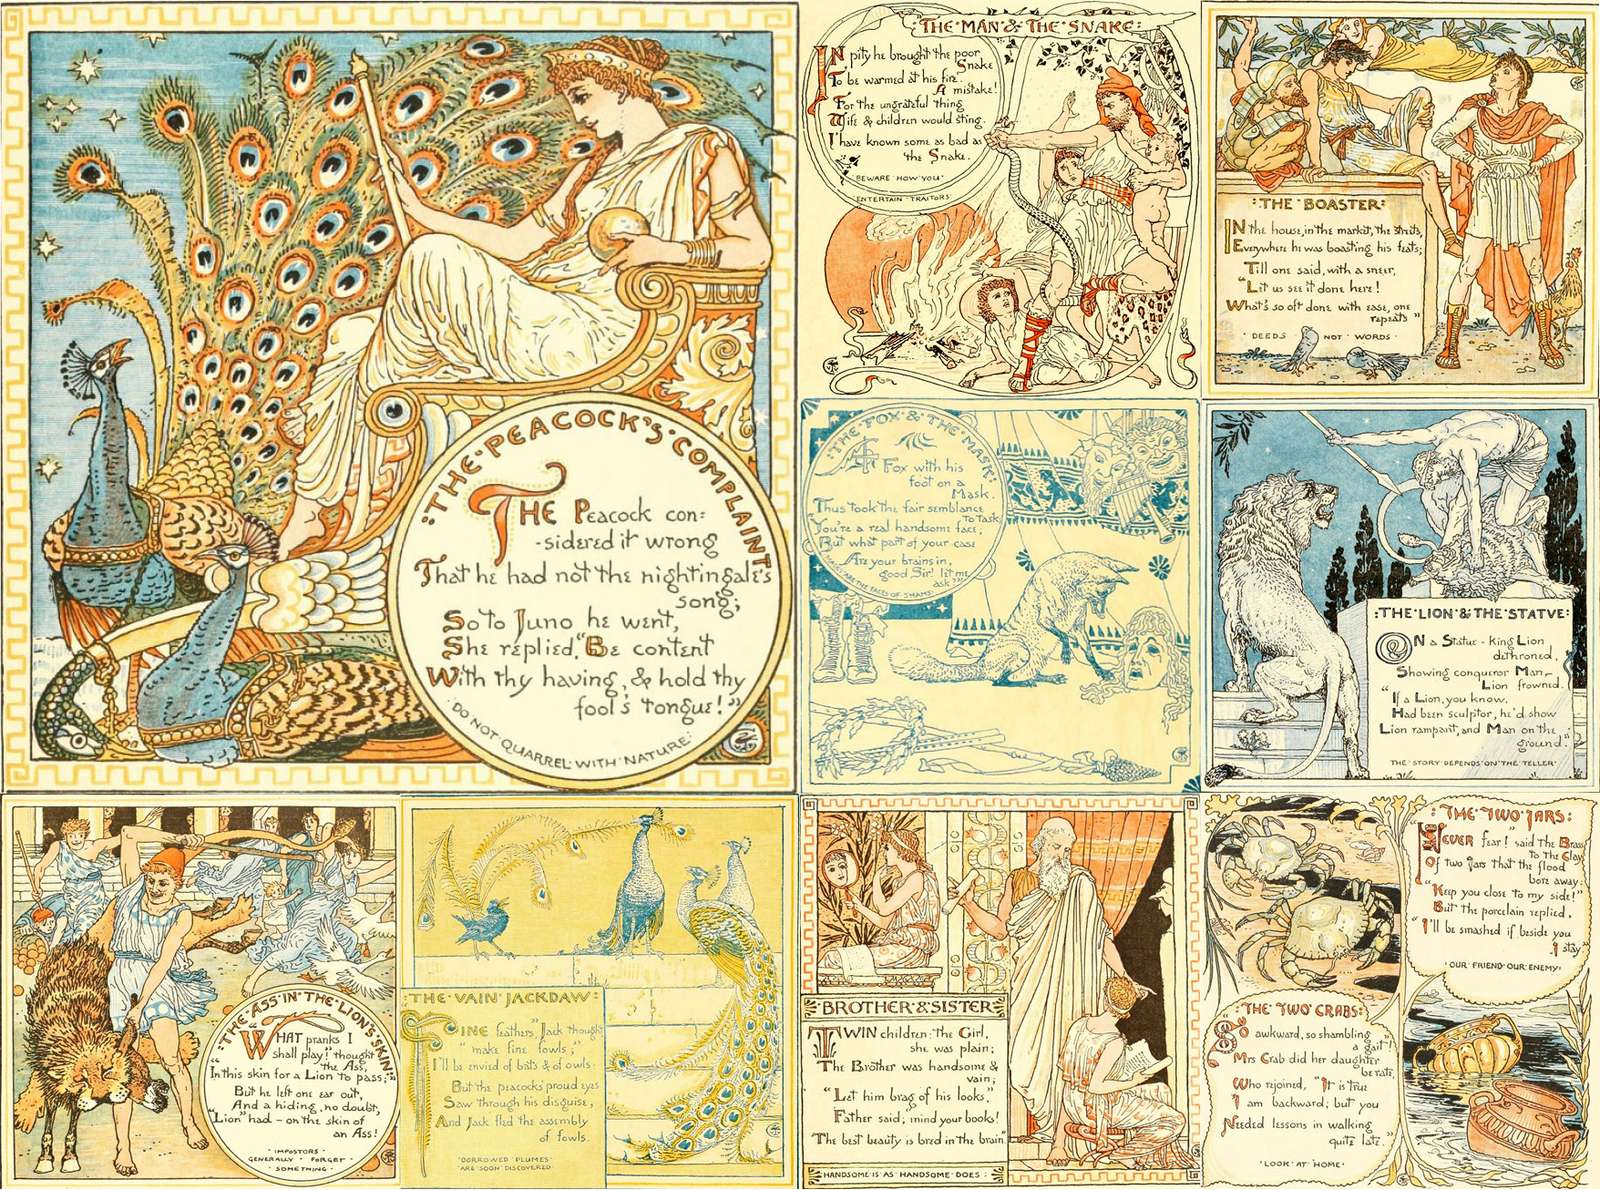 THE PEACOCK'S COMPLAINT
THE Peacock con-
-sidered it wrong
That he had not the nightingale's
song;
So to Juno he went,
She replied, "Be content
With thy having, & hold thy
fool's tongue!"
DO NOT QUARREL WITH NATURE
THE MAN & THE SNAKE
IN pity he brought the poor
Snake
To be warmed at his fire.
A mistake!
For the ungrateful thing
Wife & children would sting.
I have known some as bad as
the Snake.
BEWARE HOW YOU
ENTERTAIN TRAITORS
THE BOASTER
IN the house, in the market, the streets,
Everywhere he was boasting his feats;
Till one said, with a sneer,
"Let us see it done here!
What's so oft done with ease, one
repeats"
DEEDS NOT WORDS
THE FOX & THE MASK
A Fox with his
foot on a
Mask,
Thus took the fair semblance
to task
"You're a real handsome face;
But what part of your case
Are your brains in,
good Sir! let me
ask?"
THE LION & THE STATVE
ON a Statue - king Lion
dethroned,
Showing conqueror Man, -
Lion frowned.
"If a Lion, you know,
Had been sculptor, he'd show
Lion rampant, and Man on the
ground."
THE STORY DEPENDS ON THE TELLER
THE ASS IN THE LION'S SKIN
"WHAT pranks I
shall play!" thought
the Ass,
"In this skin for a Lion to pass;"
But he left one ear out,
And a hiding, no doubt,
"Lion" had - on the skin of
an Ass!
IMPOSTORS
GENERALLY FORGET
SOMETHING
THE VAIN JACKDAW
"FINE feathers," Jack thought,
"make fine fowls;
I'll be envied of bats & of owls:"
But the peacocks' proud eyes
Saw through his disguise,
And Jack fled the assembly
of fowls.
BORROWED PLUMES
ARE SOON DISCOVERED
BROTHER & SISTER
TWIN children: the Girl,
she was plain;
The Brother was handsome &
vain;
"Let him brag of his looks,"
Father said; "mind your books!
The best beauty is bred in the brain."
HANDSOME IS AS HANDSOME DOES
THE TWO JARS
NEVER fear!" said the Brass
to the Clay
Of two Jars that the flood
bore away:
"Keep you close to my side!"
But the porcelain replied,
"I'll be smashed if beside you
I stay"
OUR FRIEND OUR ENEMY
THE TWO CRABS
SO awkward, so shambling
a gait"!
Mrs Crab did her daughter
berate,
Who rejoined, "It is true
I am backward; but you
Needed lessons in walking
quite late."
LOOK AT HOME